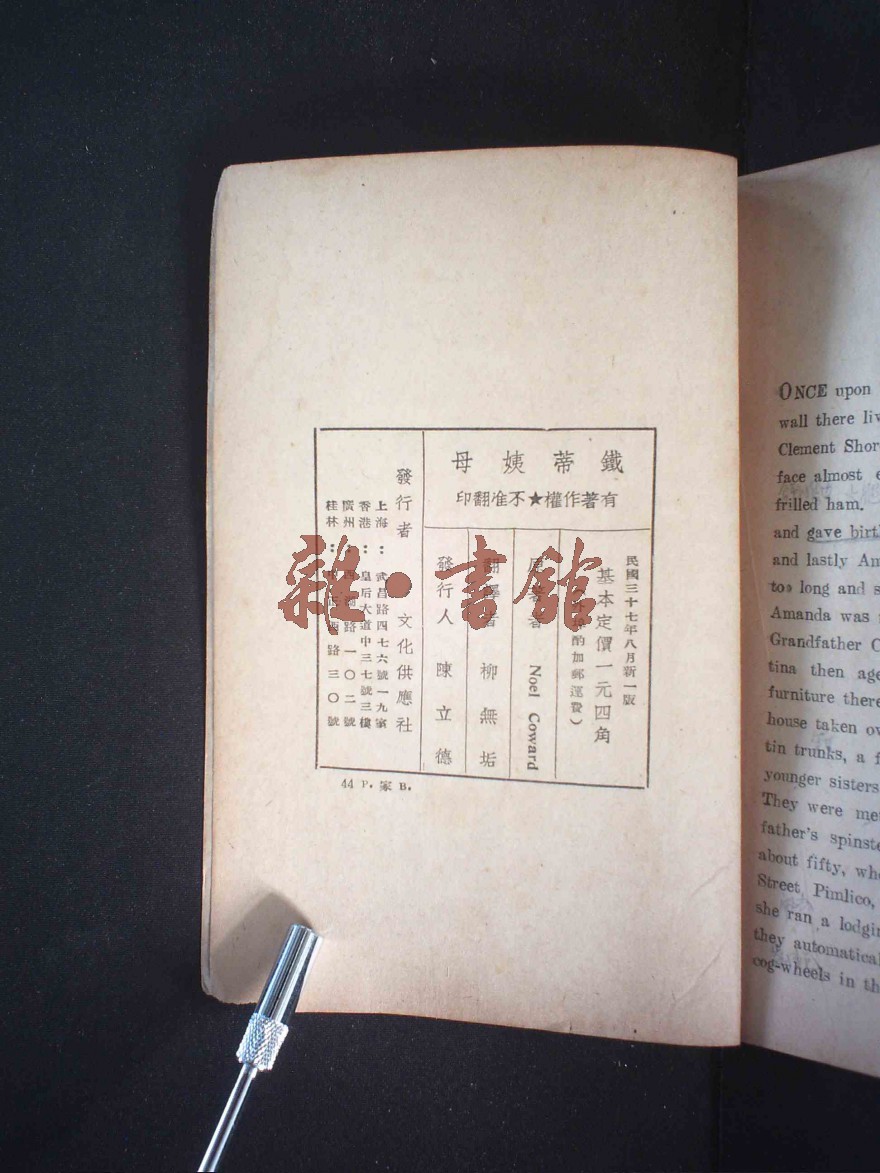 鐵蒂姨母
有著作權★不准翻印
民國三十七年八月新一版
基本定價一元四角
酌加郵運費）
原著者 Noel Coward
翻譯者 柳無垢
發行人 陳立德
發行者 文化供應社
上海：武昌路四七六號一九家
香港：皇后大道中三七號三樓
廣州：路一〇二號
桂林：路三〇號
44 P. 家 B.
雜·書館
ONCE upon
wall there liv
Clement Shor
face almost e
frilled ham.
and gave birt
and lastly Am
too long and s
Amanda was
Grandfather C
tina then age
furniture there
house taken ov
tin trunks, a f
younger sisters
They were me
father's spinste
about fifty, who
Street, Pimlico,
she ran a lodgin
they automatical
cog-wheels in th